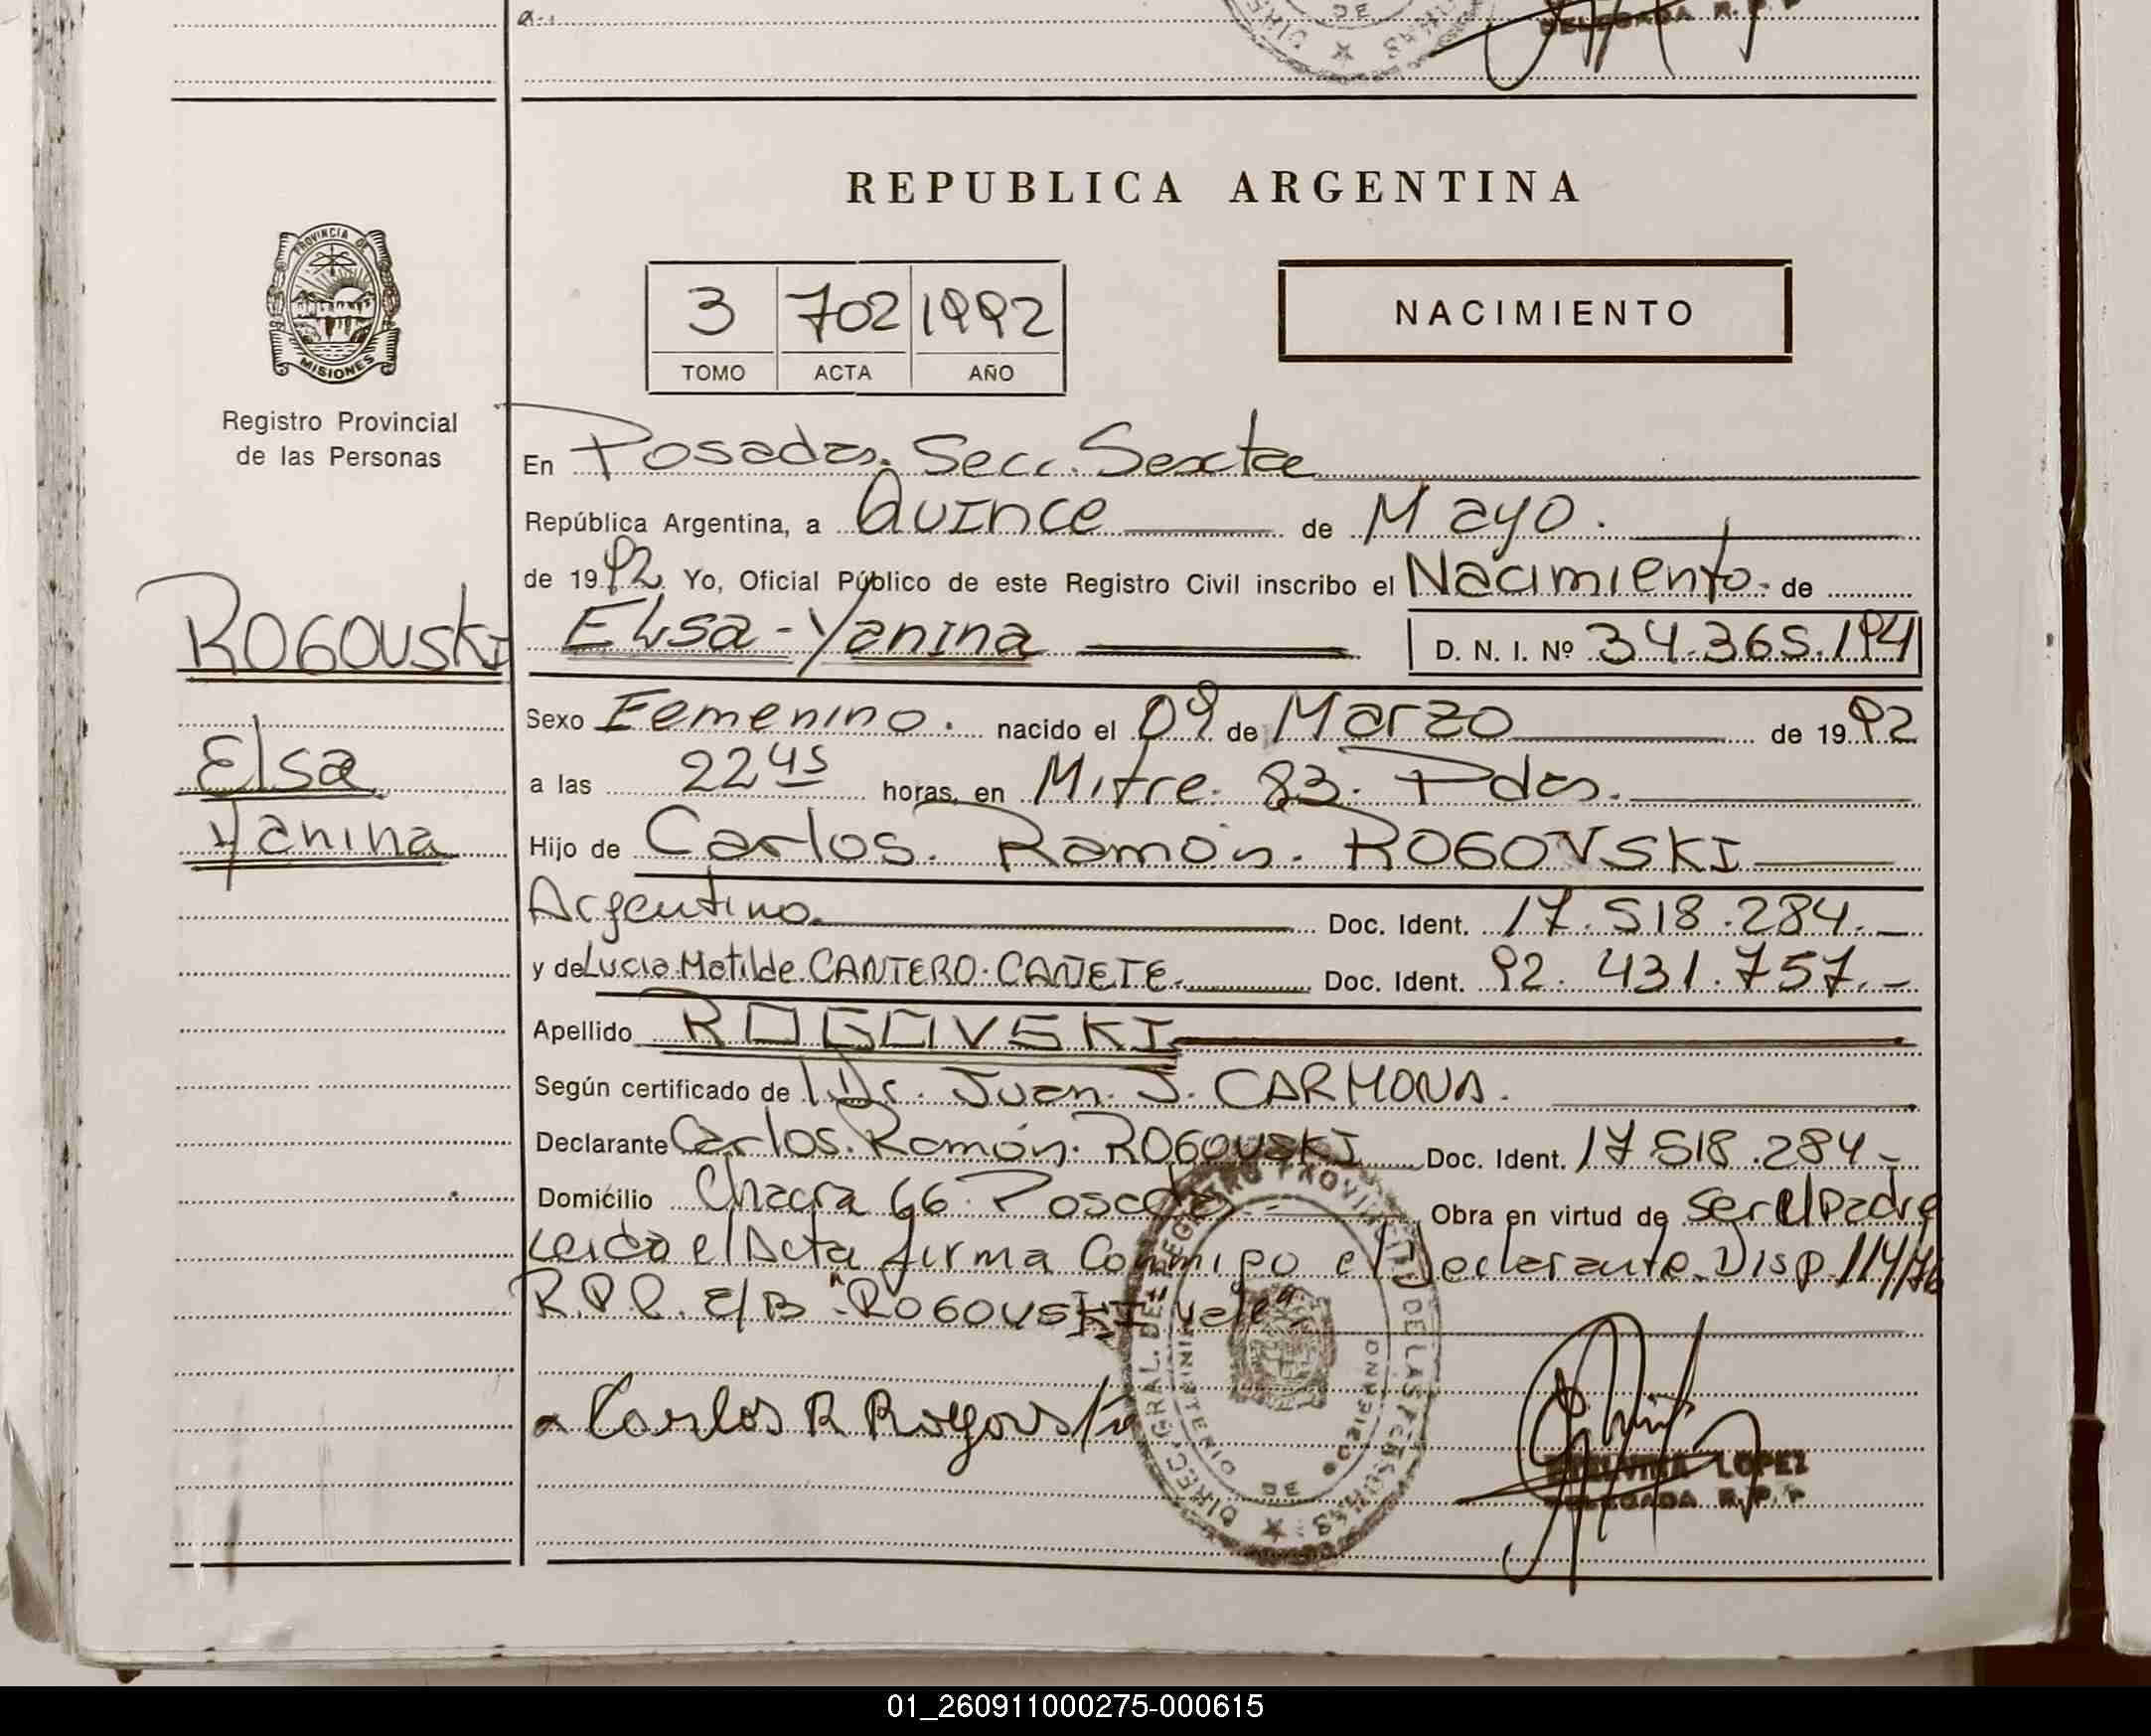 a..
DELEGADA R. P. P
REPUBLICA ARGENTINA
PROVINCIA DE
MISIONES
Registro Provincial
de las Personas
3 702 1992
TOMO ACTA AÑO
NACIMIENTO
En Posadas. Secc. Sexta
República Argentina, a Quince de Mayo.
de 1992 Yo, Oficial Público de este Registro Civil inscribo el Nacimiento. de
ROGOVSKI
Elsa - Yanina D. N. I. Nº 34.365.194
Sexo Femenino. nacido el 09 de Marzo de 1992
Elsa
a las 22 45 horas, en Mitre. 83. Pdas.
Yanina
Hijo de Carlos. Ramón. ROGOVSKI
Argentino. Doc. Ident. 17.518.284.-
y de Lucia Matilde CANTERO. CAÑETE. Doc. Ident. 92.431.757.-
Apellido ROGOVSKI
Según certificado de Dr. Juan. J. CARMONA.
Declarante Carlos. Ramón. ROGOVSKI Doc. Ident. 17 518.284-
Domicilio Chacra 66. Posadas Obra en virtud de ser el padre
Leida el Acta firma Conmigo el Declarante. Disp. 114/76
R.P.P. E/B "ROGOVSKI" vale
DIREC. GRAL. DEL REGISTRO PROVINCIAL DE LAS PERSONAS
a Carlos R Rogovski
LOPEZ
DELEGADA R. P. P
01_260911000275-000615